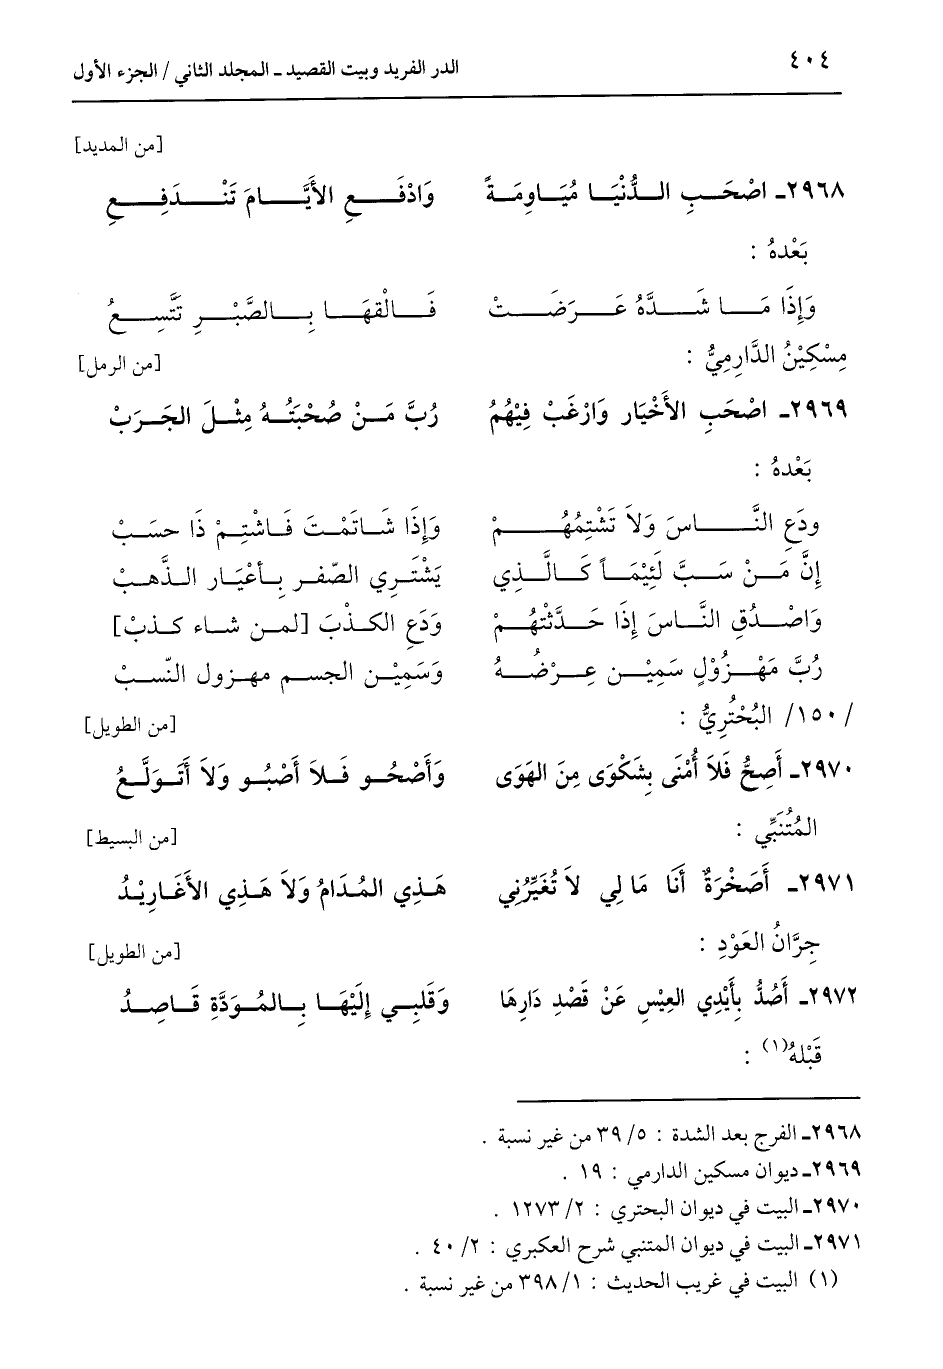 ٤٠٤
الدر الفريد وبيت القصيد ـ المجلد الثاني / الجزء الأول
[من المديد]
٢٩٦٨ـ اصْحَبِ الدُّنْيَا مُيَاوِمَةً وَادْفَعِ الأَيَّامَ تَنْدَفِعِ
بَعْدهُ :
وَإِذَا مَا شَدَّهُ عَرَضَتْ فَالْقهَا بِالصَّبْرِ تَتَّسِعُ
مِسْكِيْنُ الدَّارِمِيُّ : [من الرمل]
٢٩٦٩ـ اصْحَبِ الأَخْيَار وَارْغَبْ فِيْهُمُ رُبَّ مَنْ صُحْبَتُهُ مِثْلَ الجَرَبْ
بَعْدهُ :
ودَعِ النَّاسَ وَلاَ تَشْتِمُهُمْ وَإِذَا شَاتَمْتَ فَاشْتِمْ ذَا حسَبْ
إِنَّ مَنْ سَبَّ لَئِيْمَاً كَالَّذِي يَشْتَرِي الصّفر بِأعْيَار الذَّهبْ
وَاصْدُقِ النَّاسَ إِذَا حَدَّثْتهُمْ وَدَعِ الكذْبَ [لمن شاء كذبْ]
رُبَّ مَهْزُوْلٍ سَمِيْن عِرْضُهُ وَسَمِيْن الجسم مهزول النّسبْ
/١٥٠/ البُحْتُرِيُّ : [من الطويل]
٢٩٧٠ـ أَصِحُّ فَلاَ أُمْنَى بِشَكْوَى مِنَ الهَوَى وَأَصْحُو فَلاَ أَصْبُو وَلاَ أَتَوَلَّعُ
المُتُنَبِّي : [من البسيط]
٢٩٧١ـ أَصَخْرَةٌ أَنَا مَا لِي لاَ تُغَيِّرُنِي هَذِي المُدَامُ وَلاَ هَذِي الأَغَارِيْدُ
جِرَّانُ العَوْدِ : [من الطويل]
٢٩٧٢ـ أَصُدُّ بِأَيْدِي العِيْسِ عَنْ قَصْدِ دَارِهَا وَقَلبِي إِلَيْهَا بِالمُوَدَّةِ قَاصِدُ
قَبْلهُ(١) :
٢٩٦٨ـ الفرج بعد الشدة : ٥/ ٣٩ من غير نسبة .
٢٩٦٩ـ ديوان مسكين الدارمي : ١٩ .
٢٩٧٠ـ البيت في ديوان البحتري : ٢/ ١٢٧٣ .
٢٩٧١ـ البيت في ديوان المتنبي شرح العكبري : ٢/ ٤٠ .
(١) البيت في غريب الحديث : ١/ ٣٩٨ من غير نسبة .